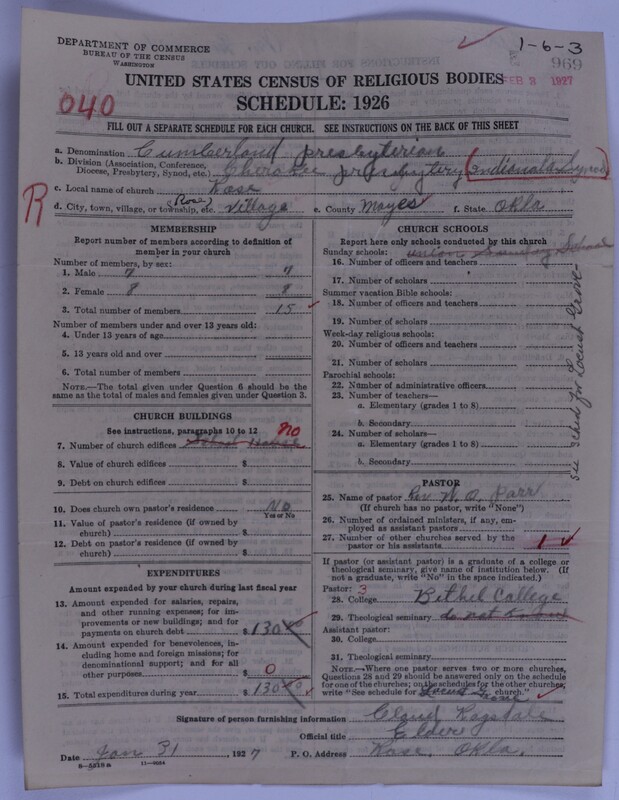 1-6-3
DEPARTMENT OF COMMERCE
BUREAU OF THE CENSUS
WASHINGTON
969
FEB 3 1927
UNITED STATES CENSUS OF RELIGIOUS BODIES
040
SCHEDULE: 1926
FILL OUT A SEPARATE SCHEDULE FOR EACH CHURCH. SEE INSTRUCTIONS ON THE BACK OF THIS SHEET
a. Denomination Cumberland Presbyterian
b. Division (Association, Conference, Diocese, Presbytery, Synod, etc.) Cherokee Presbytery (Indianola Synod)
R
c. Local name of church Rose
d. City, town, village, or township, etc. (Rose) Village e. County Mayes f. State Okla
MEMBERSHIP
Report number of members according to definition of member in your church
Number of members, by sex:
1. Male 7 7
2. Female 8 8
3. Total number of members 15
Number of members under and over 13 years old:
4. Under 13 years of age
5. 13 years old and over
6. Total number of members
NOTE.—The total given under Question 6 should be the same as the total of males and females given under Question 3.
CHURCH BUILDINGS
See instructions, paragraphs 10 to 12 no
7. Number of church edifices School House
8. Value of church edifices $
9. Debt on church edifices $
10. Does church own pastor's residence No
Yes or No
11. Value of pastor's residence (if owned by church) $
12. Debt on pastor's residence (if owned by church) $
EXPENDITURES
Amount expended by your church during last fiscal year
13. Amount expended for salaries, repairs, and other running expenses; for improvements or new buildings; and for payments on church debt $ 130
14. Amount expended for benevolences, including home and foreign missions; for denominational support; and for all other purposes $ 0
15. Total expenditures during year $ 130
CHURCH SCHOOLS
Report here only schools conducted by this church
Sunday schools: Union Sunday School
16. Number of officers and teachers
17. Number of scholars
Summer vacation Bible schools:
18. Number of officers and teachers
19. Number of scholars
Week-day religious schools:
20. Number of officers and teachers
21. Number of scholars
Parochial schools:
22. Number of administrative officers
23. Number of teachers—
a. Elementary (grades 1 to 8)
b. Secondary
24. Number of scholars—
a. Elementary (grades 1 to 8)
b. Secondary
See Sched for Locust Grove
PASTOR
25. Name of pastor Rev. W. O. Parr
(If church has no pastor, write "None")
26. Number of ordained ministers, if any, employed as assistant pastors
27. Number of other churches served by the pastor or his assistants 1
If pastor (or assistant pastor) is a graduate of a college or theological seminary, give name of institution below. (If not a graduate, write "No" in the space indicated.)
Pastor: 3
28. College Bethel College
29. Theological seminary do not know
Assistant pastor:
30. College
31. Theological seminary
NOTE.—Where one pastor serves two or more churches, Questions 28 and 29 should be answered only on the schedule for one of the churches; on the schedules for the other churches, write "See schedule for Locust Grove church."
Signature of person furnishing information Claud Ragsdale
Official title Elder
Date Jan 31, 1927 P. O. Address Rose, Okla.
8—5518a 11—9034